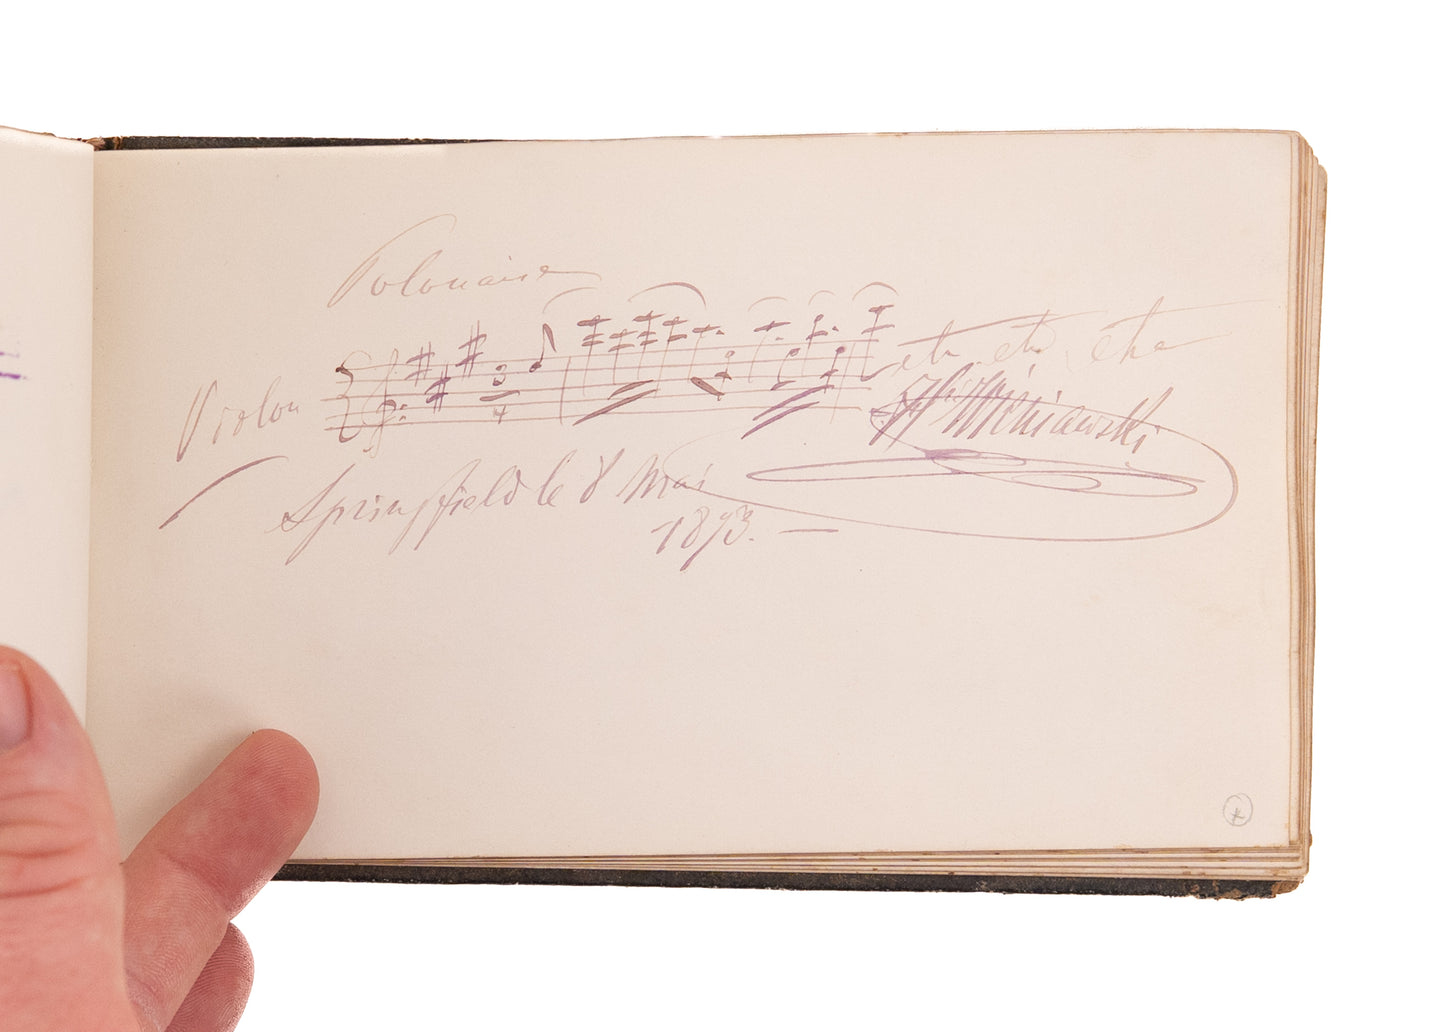 Polonaise
Violon 3 4 etc etc etc
H Wieniawski
Springfield le 8 Mai
1893. —